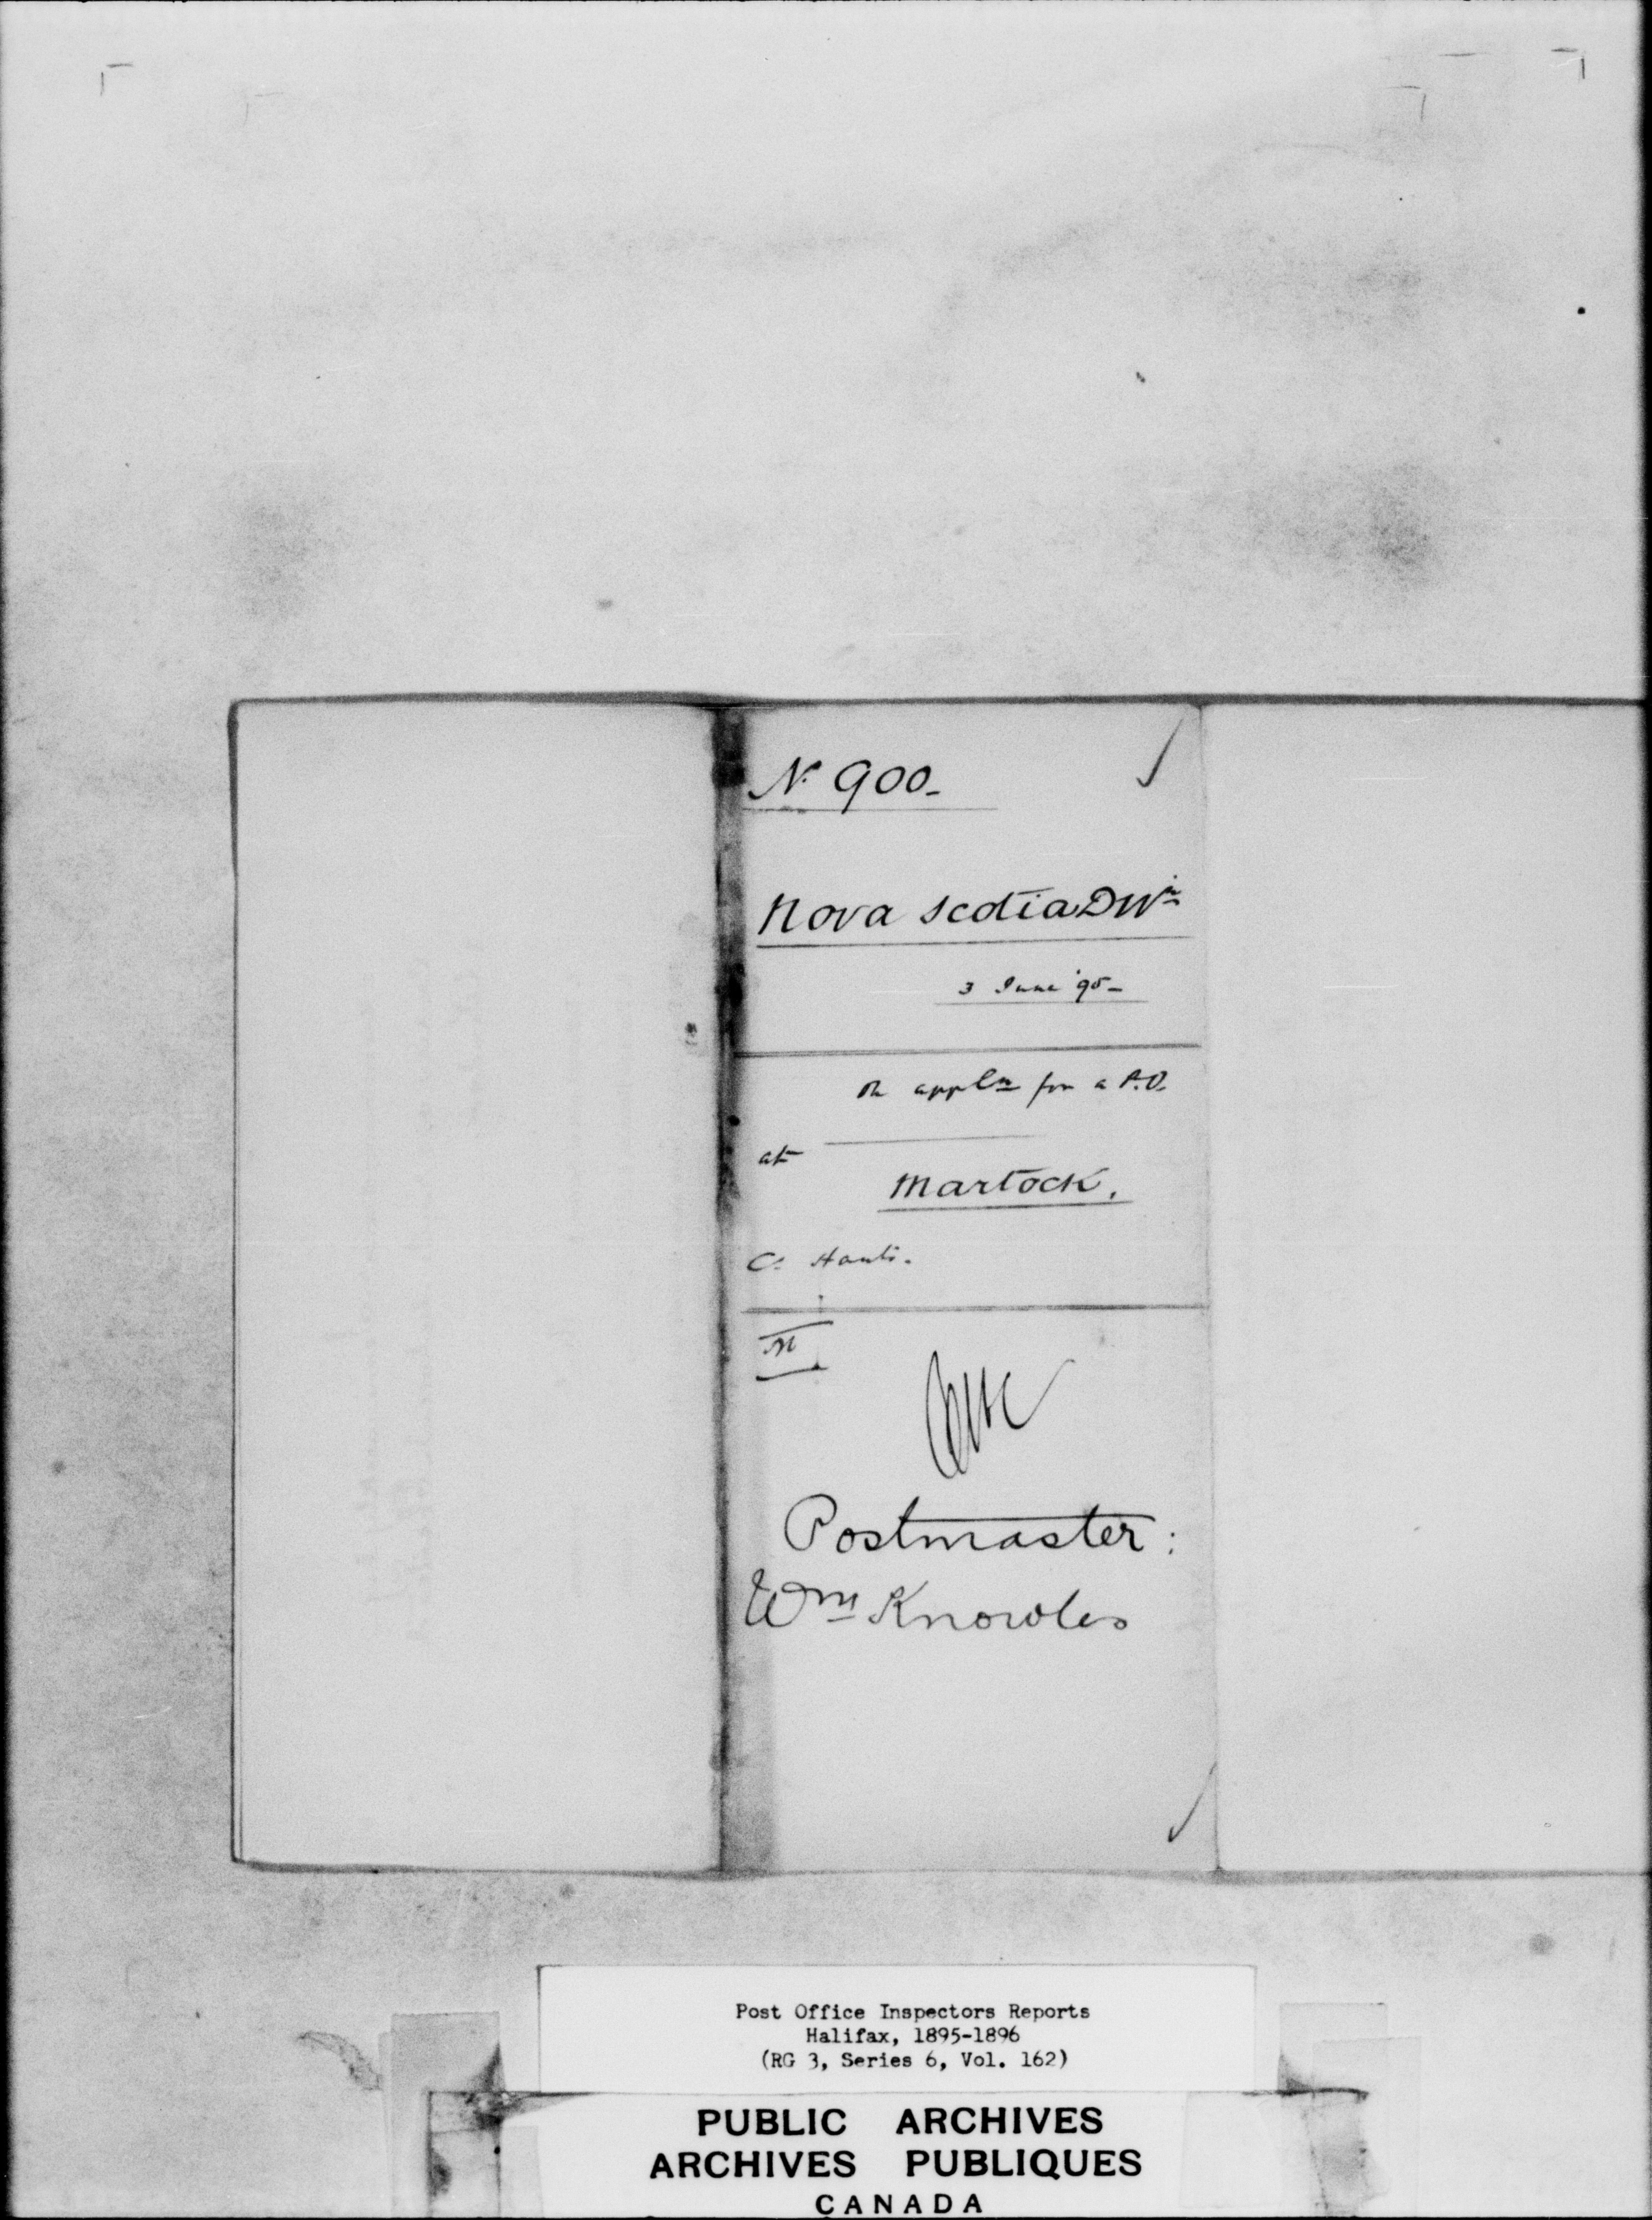 No 900-
Nova Scotia Divn
3 June '95-
On appln for a P.O.
at
Martock.
Co Hants.
M
Postmaster:
Wm Knowles
Post Office Inspectors Reports
Halifax, 1895-1896
(RG 3, Series 6, Vol. 162)
PUBLIC ARCHIVES
ARCHIVES PUBLIQUES
CANADA